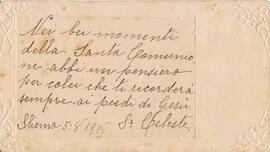 Nei bei momenti
della Santa Comunio
ne abbi un pensiero
per colei che ti ricorderà
sempre ai piedi di Gesù
5.8.19 Sr Celeste